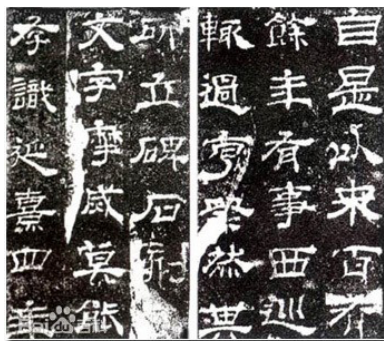 自是以來百有
餘年有事西巡
輒過享祭然其
所立碑石刻
文字摩滅莫能
存識延熹四年
Baidu百科